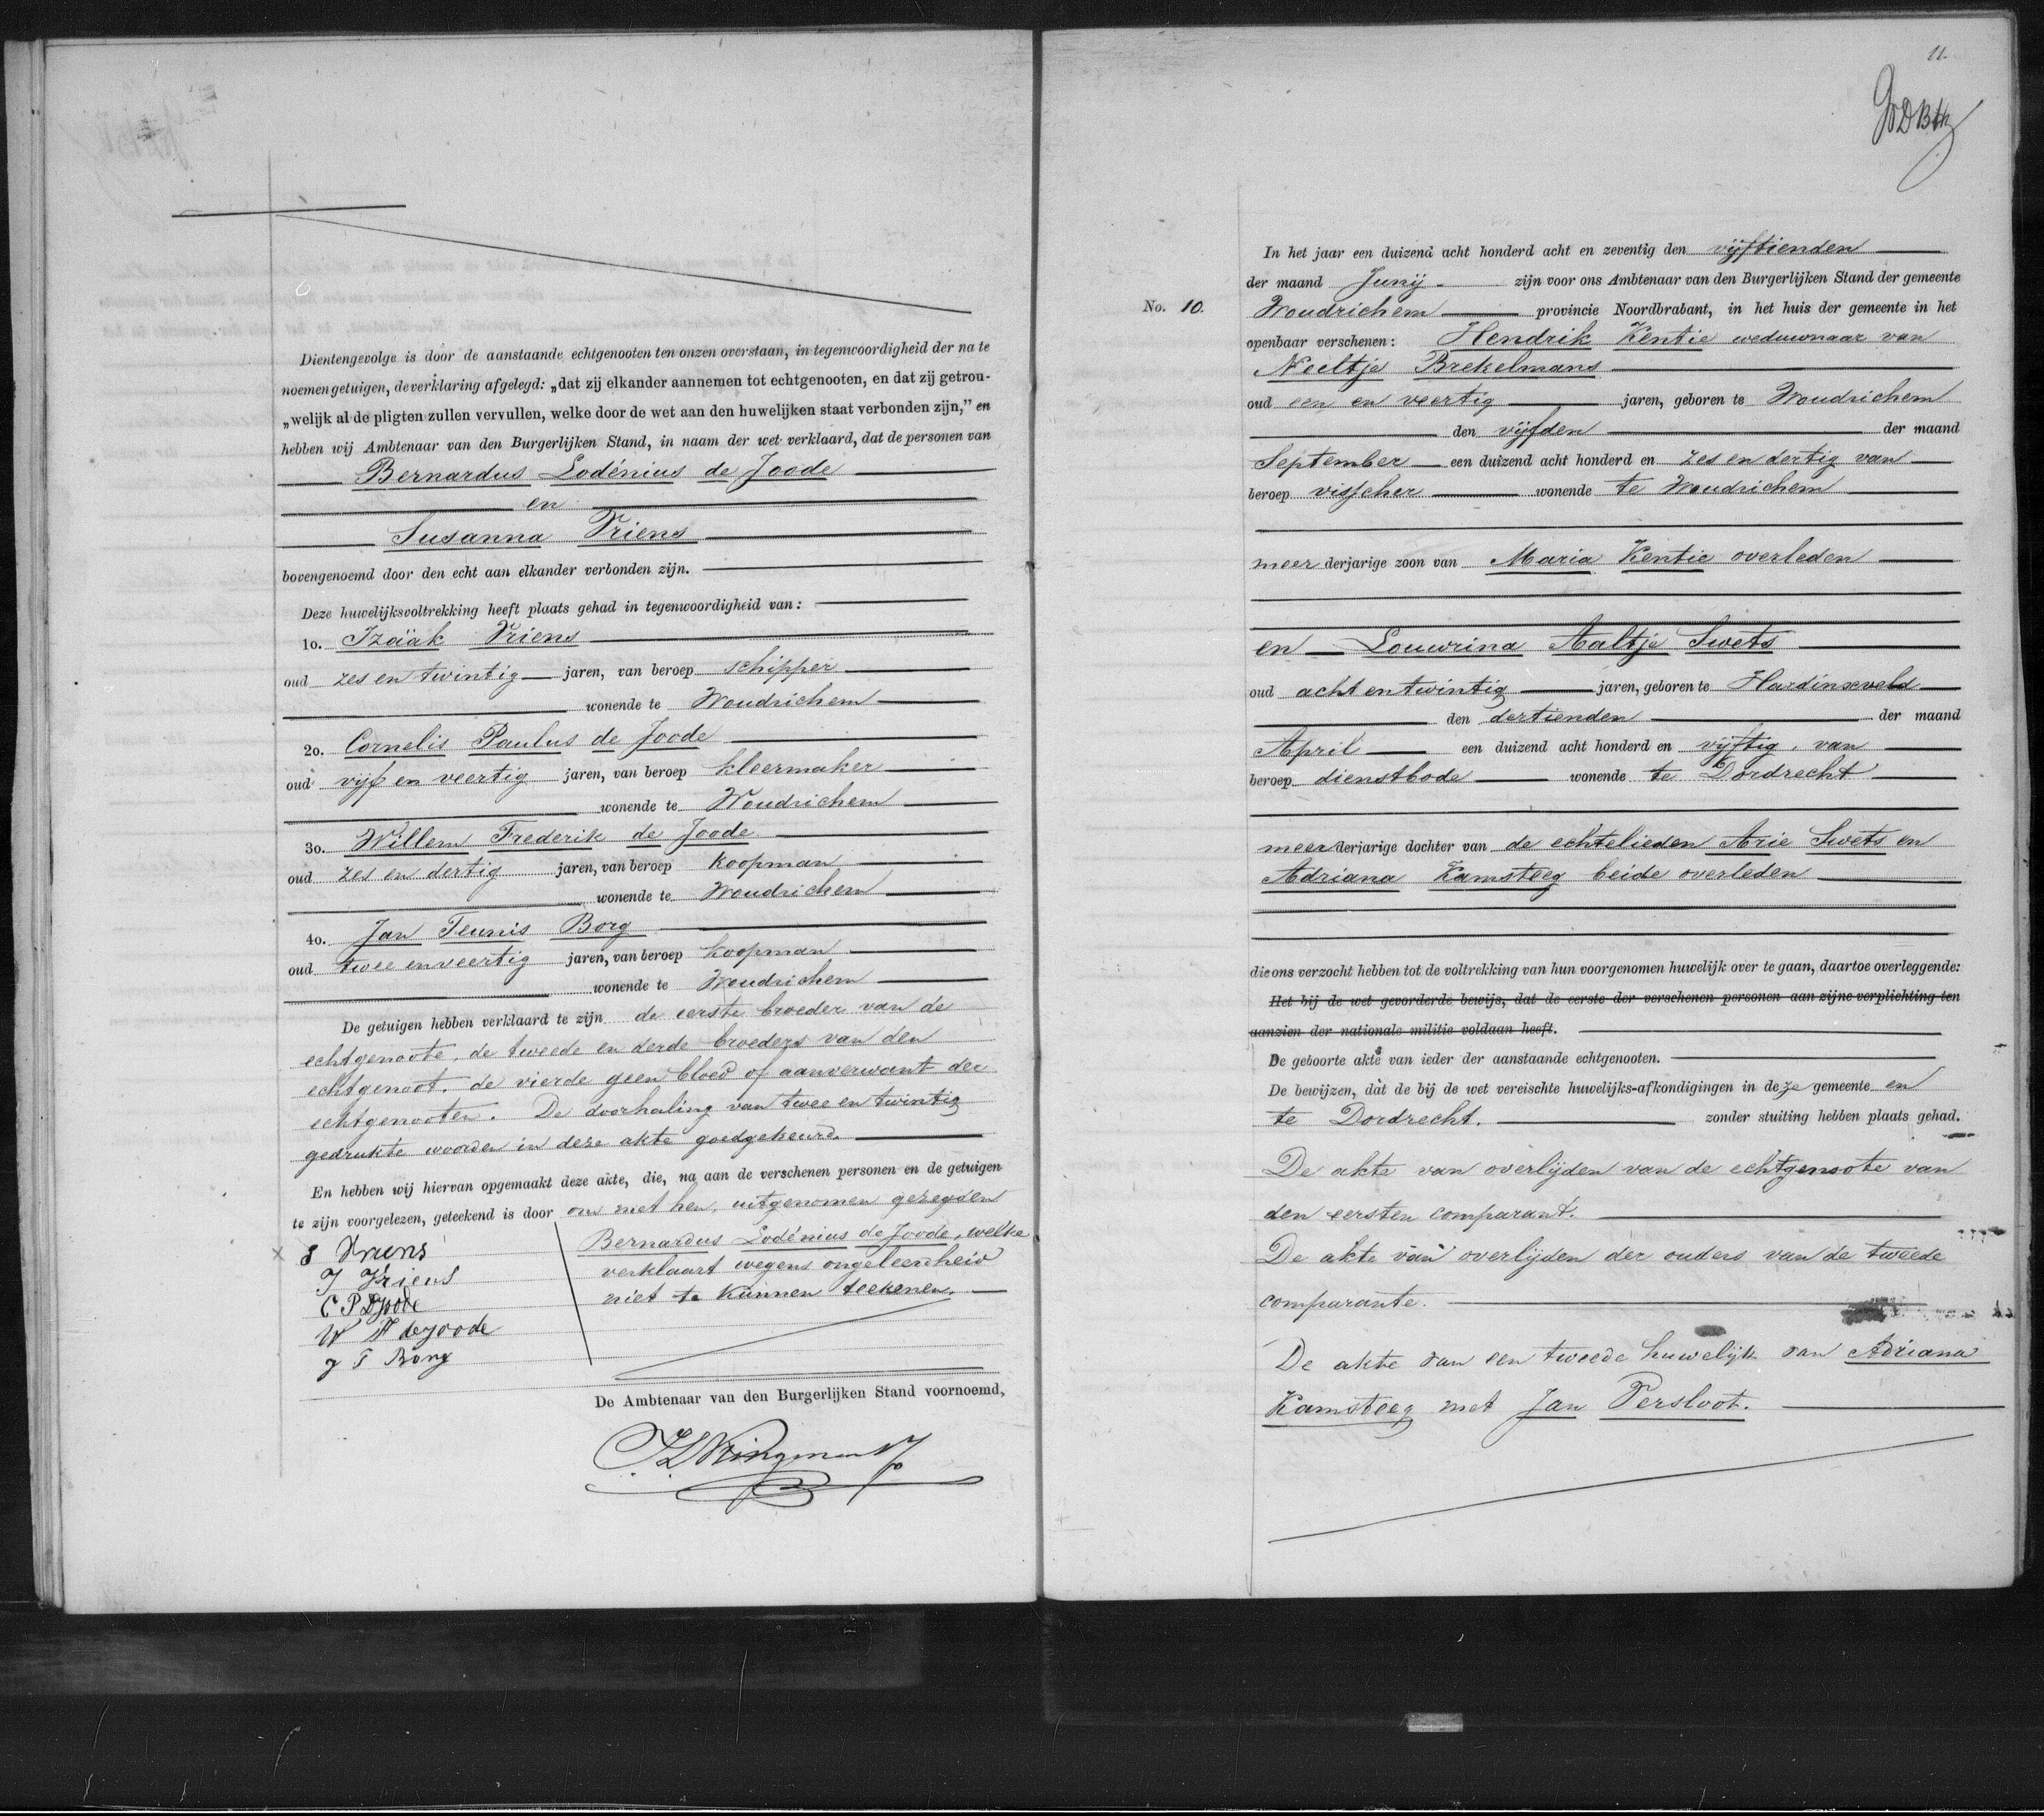 Dientengevolge is door de aanstaande echtgenooten ten onzen overstaan, in tegenwoordigheid der na te
noemen getuigen, de verklaring afgelegd: „dat zij elkander aannemen tot echtgenooten, en dat zij getrou-
„welijk al de pligten zullen vervullen, welke door de wet aan den huwelijken staat verbonden zijn,” en
hebben wij Ambtenaar van den Burgerlijken Stand, in naam der wet verklaard, dat de personen van
Bernardus Lodénius de Joode
en
Susanna Vriens
bovengenoemd door den echt aan elkander verbonden zijn.
Deze huwelijksvoltrekking heeft plaats gehad in tegenwoordigheid van:
1o. Izaäk Vriens
oud zes en twintig jaren, van beroep schipper
wonende te Woudrichem
2o. Cornelis Paulus de Joode
oud vijf en veertig jaren, van beroep kleermaker
wonende te Woudrichem
3o. Willem Frederik de Joode
oud zes en dertig jaren, van beroep koopman
wonende te Woudrichem
4o. Jan Teunis Borg
oud twee en veertig jaren, van beroep koopman
wonende te Woudrichem
De getuigen hebben verklaard te zijn de eerste broeder van de
echtgenoote, de tweede en derde broeders van den
echtgenoot, de vierde geen bloed of aanverwant der
echtgenooten. De doorhaling van twee en twintig
gedrukte woorden in deze akte goedgekeurd.
En hebben wij hiervan opgemaakt deze akte, die, na aan de verschenen personen en de getuigen
te zijn voorgelezen, geteekend is door ons met hen, uitgenomen gezegden
Bernardus Lodénius de Joode, welke
verklaart wegens ongeleerdheid
niet te kunnen teekenen.
S Vriens
J Vriens
C P D Joode
W F de Joode
J T Borg
De Ambtenaar van den Burgerlijken Stand voornoemd,
11.
No. 10.
In het jaar een duizend acht honderd acht en zeventig den vijftienden
der maand Junij zijn voor ons Ambtenaar van den Burgerlijken Stand der gemeente
Woudrichem provincie Noordbrabant, in het huis der gemeente in het
openbaar verschenen: Hendrik Kentie weduwnaar van
Neeltje Brekelmans
oud een en veertig jaren, geboren te Woudrichem
den vijfden der maand
September een duizend acht honderd en zes en dertig van
beroep visscher wonende te Woudrichem
meer derjarige zoon van Maria Kentie overleden
en Louwrina Aaltje Swets
oud acht en twintig jaren, geboren te Hardinxveld
den dertienden der maand
April een duizend acht honderd en vijftig, van
beroep dienstbode wonende te Dordrecht
meer derjarige dochter van de echtelieden Arie Swets en
Adriana Kamsteeg beide overleden
die ons verzocht hebben tot de voltrekking van hun voorgenomen huwelijk over te gaan, daartoe overleggende:
Het bij de wet gevorderde bewijs, dat de eerste der verschenen personen aan zijne verplichting ten
aanzien der nationale militie voldaan heeft.
De geboorte akte van ieder der aanstaande echtgenooten.
De bewijzen, dat de bij de wet vereischte huwelijks-afkondigingen in deze gemeente en
te Dordrecht. zonder stuiting hebben plaats gehad.
De akte van overlijden van de echtgenoote van
den eersten comparant.
De akte van overlijden der ouders van de tweede
comparante.
De akte van een tweede huwelijk van Adriana
Kamsteeg met Jan Persloot.